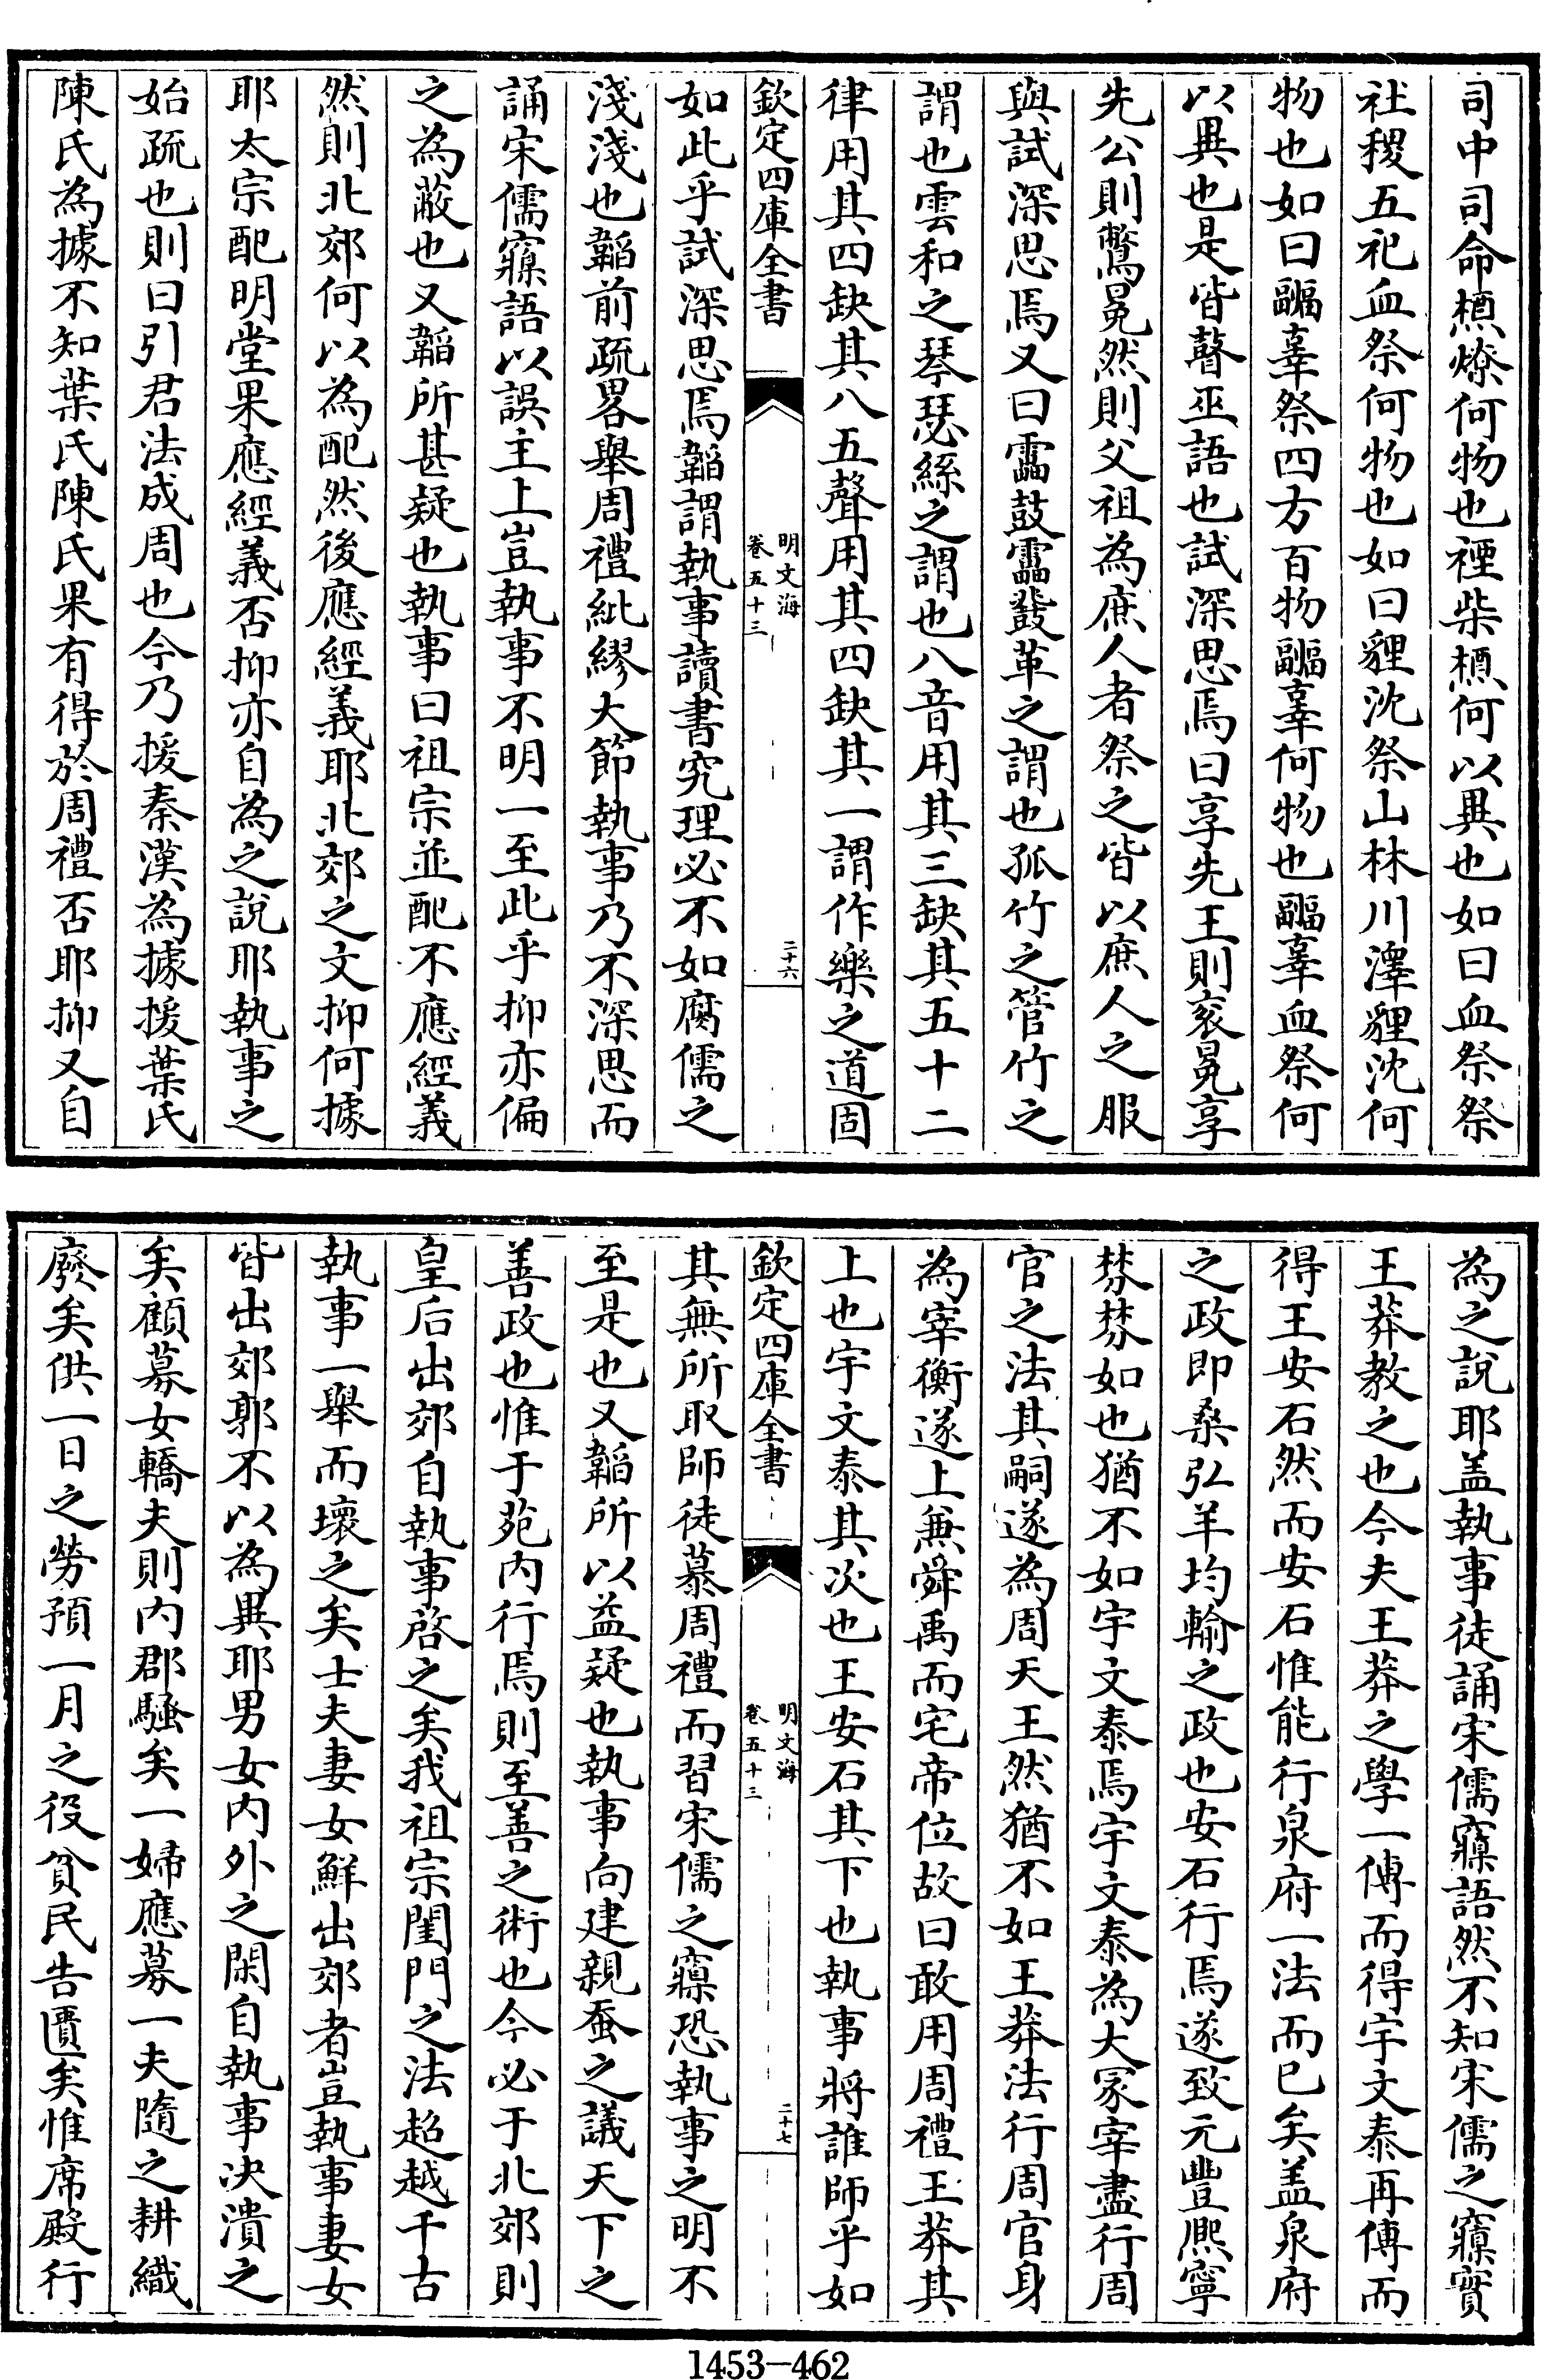 司中司命槱燎何物也禋柴槱何以異也如曰血祭祭
社稷五祀血祭何物也如曰貍沈祭山林川澤貍沈何
物也如曰疈辜祭四方百物疈辜何物也疈辜血祭何
以異也是皆瞽巫語也試深思焉曰享先王則衮冕享
先公則鷩冕然則父祖為庶人者祭之皆以庶人之服
與試深思焉又曰靁鼓靁鼗革之謂也孤竹之管竹之
謂也雲和之琴瑟絲之謂也八音用其三缺其五十二
律用其四缺其八五聲用其四缺其一謂作樂之道固
欽定四庫全書
明文海
卷五十三
二十六
如此乎試深思焉韜謂執事讀書究理必不如腐儒之
淺淺也韜前疏畧舉周禮紕繆大節執事乃不深思而
誦宋儒寱語以誤主上豈執事不明一至此乎抑亦偏
之為蔽也又韜所甚疑也執事曰祖宗並配不應經義
然則北郊何以為配然後應經義耶北郊之文抑何據
耶太宗配明堂果應經義否抑亦自為之說耶執事之
始疏也則曰引君法成周也今乃援秦漢為據援葉氏
陳氏為據不知葉氏陳氏果有得於周禮否耶抑又自
為之說耶盖執事徒誦宋儒寱語然不知宋儒之寱實
王莽教之也今夫王莽之學一傳而得宇文泰再傳而
得王安石然而安石惟能行泉府一法而已矣盖泉府
之政即桑弘羊均輸之政也安石行焉遂致元豐熈寧
棼棼如也猶不如宇文泰焉宇文泰為大冢宰盡行周
官之法其嗣遂為周天王然猶不如王莽法行周官身
為宰衡遂上兼舜禹而宅帝位故曰敢用周禮王莽其
上也宇文泰其次也王安石其下也執事將誰師乎如
欽定四庫全書
明文海
卷五十三
二十七
其無所取師徒慕周禮而習宋儒之寱恐執事之明不
至是也又韜所以益疑也執事向建親蚕之議天下之
善政也惟于苑內行焉則至善之術也今必于北郊則
皇后出郊自執事啓之矣我祖宗閨門之法超越千古
執事一舉而壞之矣士夫妻女鮮出郊者豈執事妻女
皆出郊郭不以為異耶男女內外之閑自執事决潰之
矣顧募女轎夫則內郡騷矣一婦應募一夫隨之耕織
廢矣供一日之勞預一月之役貧民告匱矣惟席殿行
1453—462